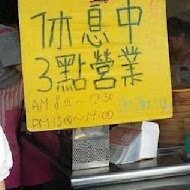 休息中
3點營業
AM 8:00~12:30
PM 15:00~19:00